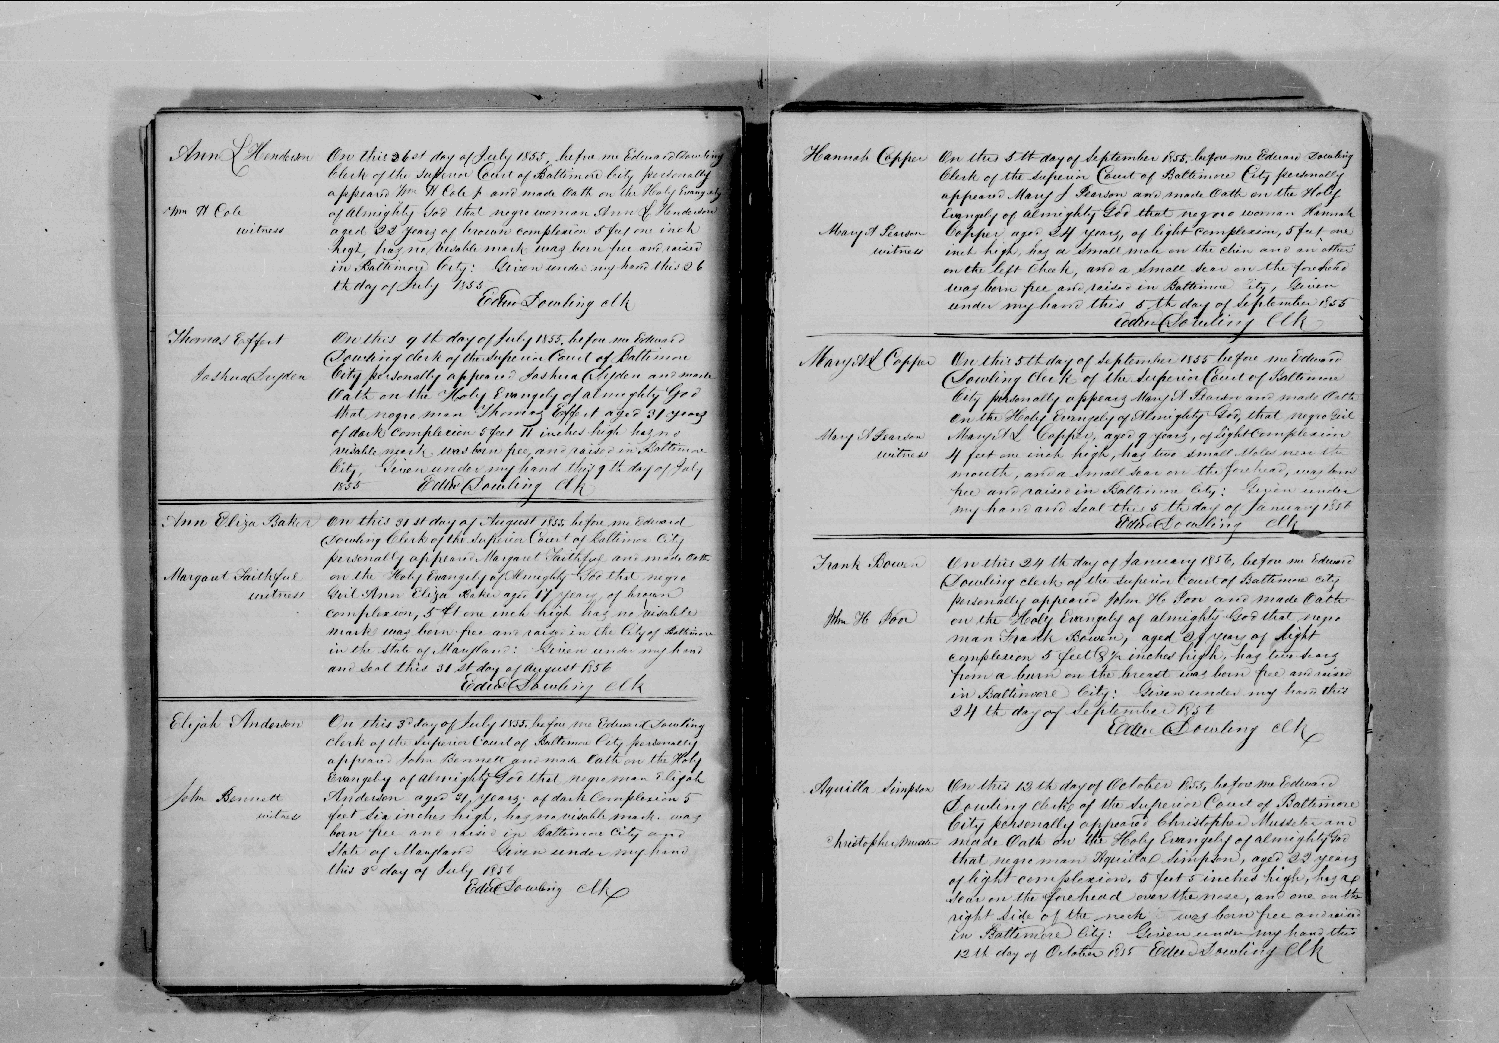 Ann L Henderson
Wm H Cole
witness
On this 26st day of July 1855, before me Edward Dowling
Clerk of the Superior Court of Baltimore City personally
appeared Wm H Cole and made Oath on the Holy Evangely
of Almighty God that negro woman Ann L Henderson
aged 22 years of brown complexion 5 feet one inch
high, has no visable mark was born free and raised
in Baltimore City: Given under my hand this 26
th day of July 1855
Edwd Dowling Clk
Thomas Effort
Joshua
On this 9th day of July 1855, before me Edward
Dowling clerk of the Superior Court of Baltimore
City personally appeared Joshua and made
Oath on the Holy Evangely of almighty God
that negro man Thomas Effort aged 31 years
of dark complexion 5 feet 11 inches high has no
visable mark was born free, and raised in Baltimore
City, Given under my hand this 9th day of July
1855 Edwd Dowling Clk
Ann Eliza Baker
Margaret Faithful
witness
On this 31st day of August 1855, before me Edward
Dowling Clerk of the Superior Court of Baltimore City
personally appeared Margaret Faithful and made Oath
on the Holy Evangely of Almighty God that negro
Girl Ann Eliza Baker aged 17 years, of brown
complexion, 5 ft one inch high has no visable
mark was born free and raised in the City of Baltimore
in the State of Maryland: Given under my hand
and seal this 31st day of August 1856
Edwd Dowling Clk
Elijah Anderson
John Bennett
witness
On this 3d day of July 1855, before me Edward Dowling
clerk of the Superior Court of Baltimore City personally
appeard John Bennett and made Oath on the Holy
Evangely of almighty God that negro man Elijah
Anderson aged 21, years; of dark Complexion 5
feet six inches high, has no visable mark. was
born free and raised in Baltimore City and
State of Maryland Given under my hand
this 3d day of July 1856
Edwd Dowling Clk
Hannah Copper
Mary A Pearson
witness
On this 5th day of September 1855, before me Edward Dowling
Clerk of the Superior Court of Baltimore City personally
appeared Mary J Pearson and made Oath on the Holy
Evangely of almighty God that negro woman Hannah
Copper aged 24 years, of light complexion, 5 feet one
inch high, has a small mole on the chin and an other
on the left Cheek, and a small scar on the forehead
was born free and raised in Baltimore City, Given
under my hand this 5th day of September 1855
Edwd Dowling Clk
Mary A L Copper
Mary A Pearson
witness
On this 5th day of September 1855 before me Edward
Dowling Clerk of the Superior Court of Baltimore
City personally appears Mary A Pearson and made Oath
on the Holy Evangely of Almighty God, that negro Girl
Mary A L Copper, aged 9 years, of light Complexion
4 feet one inch high, has two small Moles near the
mouth, and a small scar on the forehead, was born
free and raised in Baltimore City: Given under
my hand and seal this 5th day of January 1856
Edwd Dowling Clk
Frank Bowen
John H
On this 24th day of January 1856, before me Edward
Dowling clerk of the Superior Court of Baltimore City
personally appeared John H and made Oath
on the Holy Evangely of almighty God that negro
man Frank Bowen, aged years of light
complexion 5 feet 8½ inches high, has two scars
from a burn on the breast was born free and raised
in Baltimore City: Given under my hand this
24th day of September 1856
Edwd Dowling Clk
Aquilla Simpson
Christopher
On this 12th day of October 1855, before me Edward
Dowling Clerk of the Superior Court of Baltimore
City personally appeared Christopher and
made Oath on the Holy Evangely of almighty God
that negro man Aquilla Simpson, aged 22 years
of light complexion, 5 feet 5 inches high, has a
scar on the forehead over the nose, and one on the
right side of the neck was born free and raised
in Baltimore City: Given under my hand this
12th day of October 1855 Edwd Dowling Clk